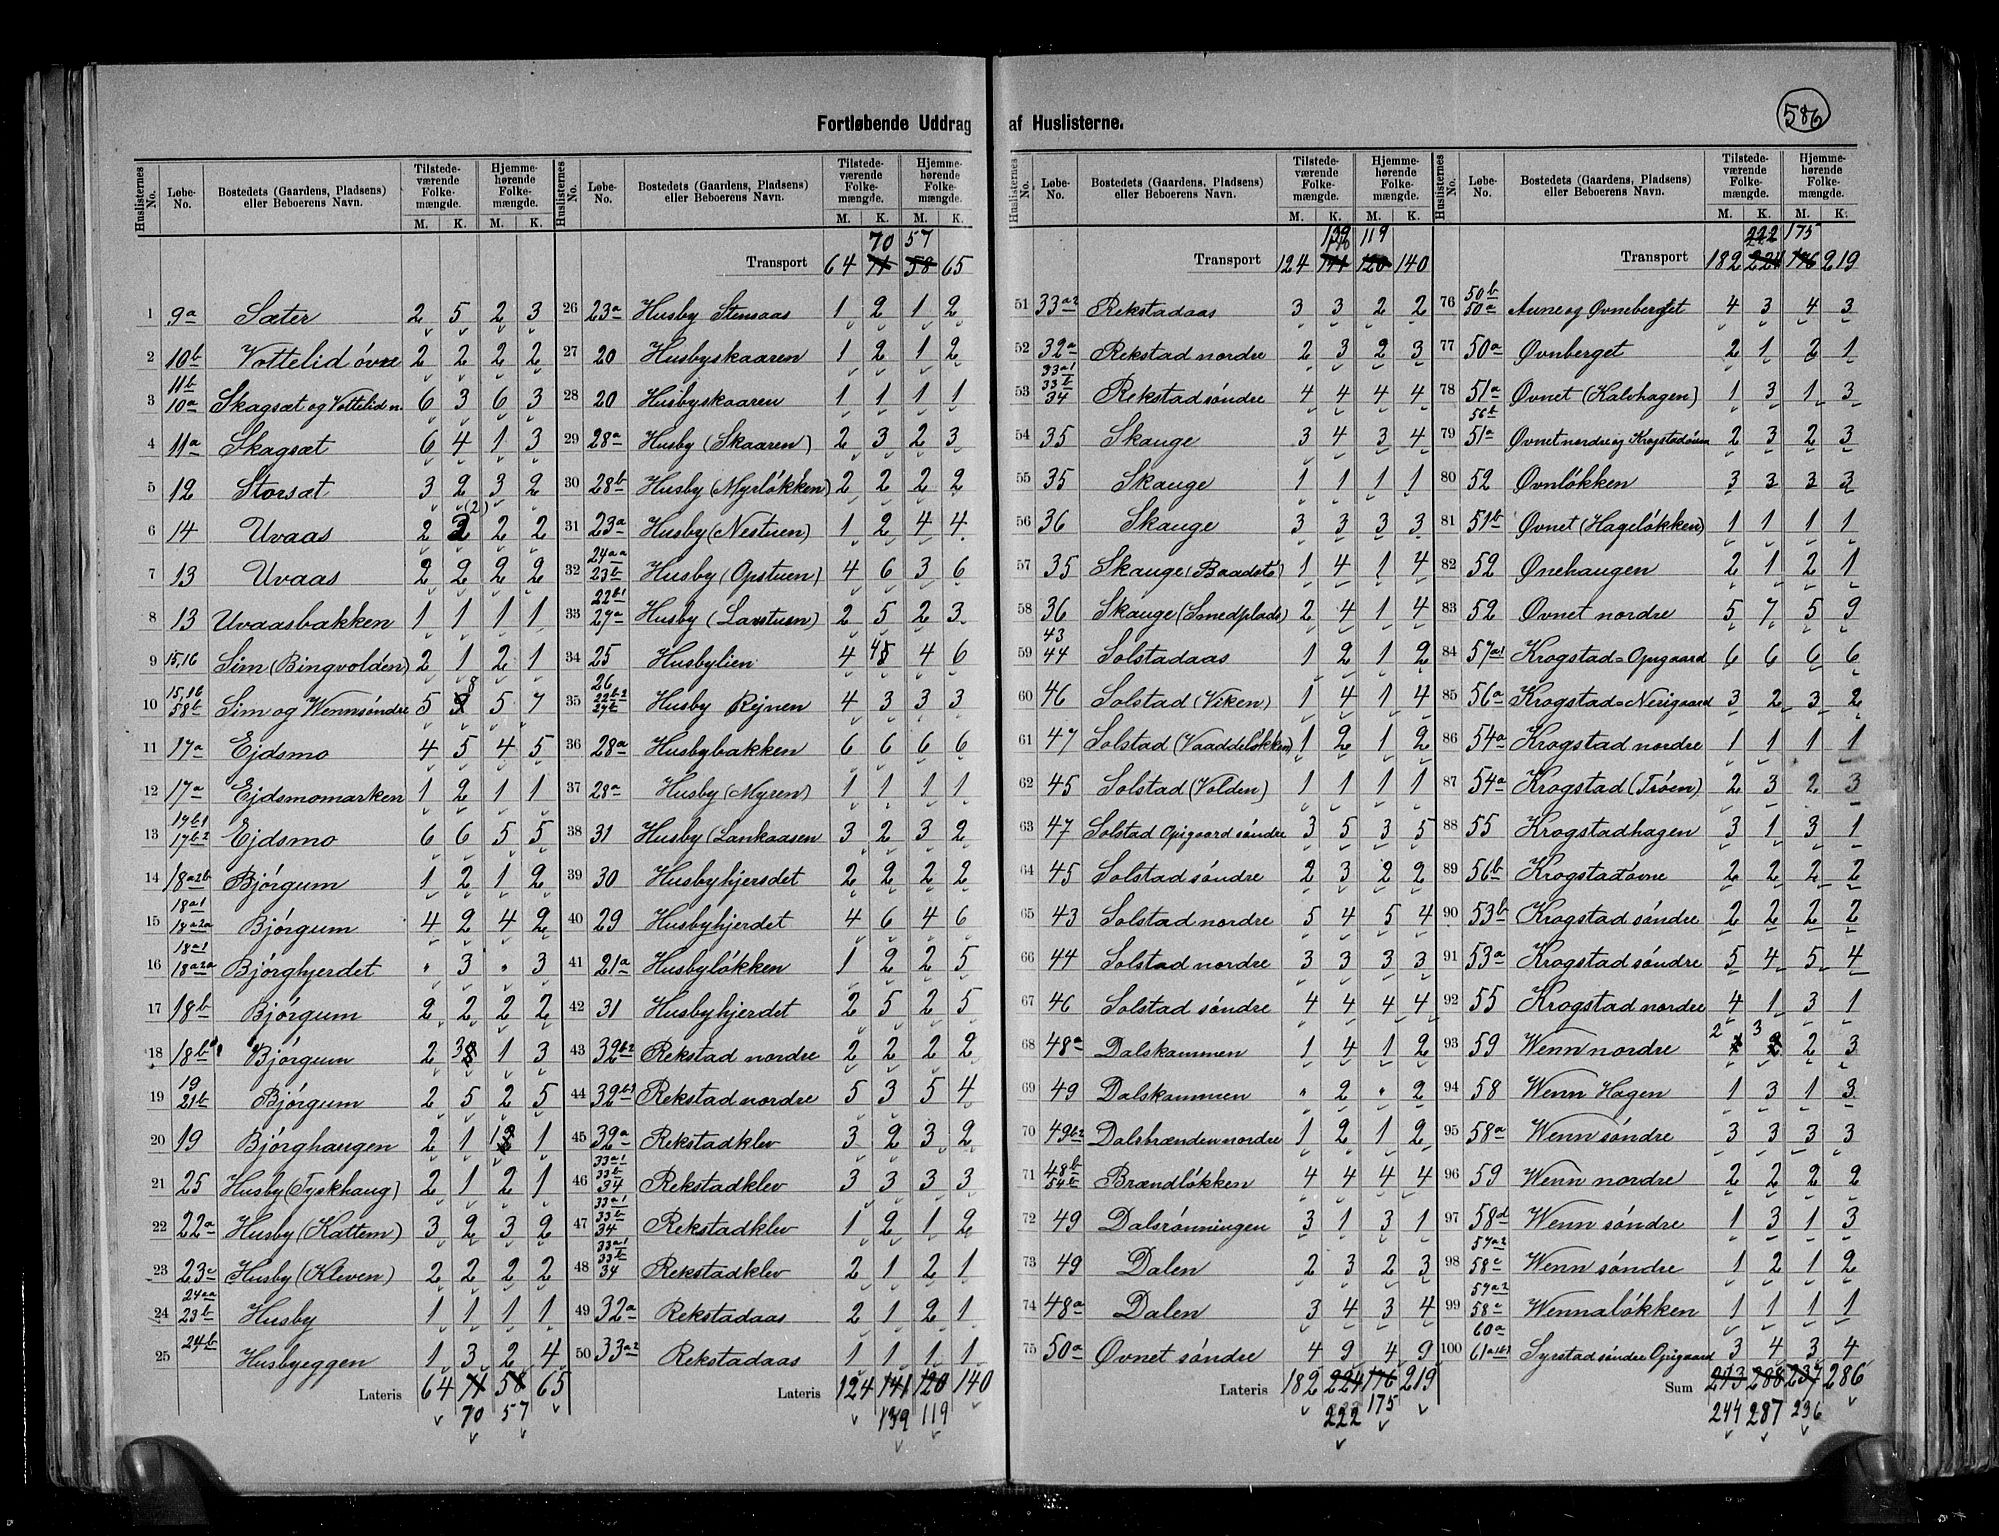 586
Fortløbende Uddrag af Huslisterne.
Huslisternes No. Løbe-No. Bostedets (Gaardens, Pladsens) eller Beboerens Navn. Tilstedeværende Folkemængde. M. K. Hjemmehørende Folkemængde. M. K.
1 9a Sæter 2 5 2 3
2 10b Vottelid øvre 2 2 2 2
3 11b 10a Skagsæt og Vottelid n. 6 3 6 3
4 11a Skagsæt 6 4 1 3
5 12 Storsæt 3 2 3 2
6 14 Uvaas 2 3 (2) 2 2
7 13 Uvaas 2 2 2 2
8 13 Uvaasbakken 1 1 1 1
9 15,16 Sim (Bingvolden) 2 1 2 1
10 15,16 58b Sim og Wennsøndre 5 8 5 7
11 17a Ejdsmo 4 5 4 5
12 17a Ejdsmomarken 1 2 1 1
13 17b1 17b2 Ejdsmo 6 6 5 5
14 18a2b Bjørgum 1 2 1 2
15 18a1 18a2a Bjørgum 4 2 4 2
16 18a1 18a2a Bjørghjerdet " 3 " 3
17 18b Bjørgum 2 2 2 2
18 18b Bjørgum 2 3 1 3
19 19 21b Bjørgum 2 5 2 5
20 19 Bjørghaugen 2 1 1 1
21 25 Husby (Tyskhaug) 2 1 2 1
22 22a Husby (Kattem) 3 2 3 2
23 23c Husby (Kleven) 2 2 2 2
24 24aa 23b Husby 1 1 1 1
25 24b Husbyeggen 1 3 2 4
Lateris 64 71 58 65
70 57
Huslisternes No. Løbe-No. Bostedets (Gaardens, Pladsens) eller Beboerens Navn. Tilstedeværende Folkemængde. M. K. Hjemmehørende Folkemængde. M. K.
70 57
Transport 64 71 58 65
26 23a Husby Stensaas 1 2 1 2
27 20 Husbyskaaren 1 2 1 2
28 20 Husbyskaaren 1 1 1 1
29 28a Husby (Skaaren) 2 3 2 3
30 28b Husby (Myrløkken) 2 2 2 2
31 23a Husby (Nestuen) 1 2 4 4
32 24aa 23b Husby (Opstuen) 4 6 3 6
33 22b1 27a Husby (Larstuen) 2 5 2 3
34 25 Husbylien 4 8 4 6
35 26 22b2 27b Husby Rejnen 4 3 3 3
36 28a Husbybakken 6 6 6 6
37 28a Husby (Myren) 1 1 1 1
38 31 Husby (Lankaasen 3 2 3 2
39 30 Husbyhjerdet 2 2 2 2
40 29 Husbyhjerdet 4 6 4 6
41 21a Husbyløkken 1 2 2 5
42 31 Husbyhjerdet 2 5 2 5
43 32b2 Rekstad nordre 2 2 2 2
44 32b1 Rekstad nordre 5 3 5 4
45 32a Rekstadklev 3 2 3 2
46 33a1 33b 34 Rekstadklev 3 3 3 3
47 33a1 33b 34 Rekstadklev 1 2 1 2
48 33a1 33b 34 Rekstadklev 2 1 2 1
49 32a Rekstadaas 2 1 2 1
50 33a2 Rekstadaas 1 1 1 1
Lateris 124 141 120 140
139 119
Huslisternes No. Løbe-No. Bostedets (Gaardens, Pladsens) eller Beboerens Navn. Tilstedeværende Folkemængde. M. K. Hjemmehørende Folkemængde. M. K.
139 119
Transport 124 141 120 140
51 33a2 Rekstadaas 3 3 2 2
52 32a Rekstad nordre 2 3 2 3
53 33a1 33b 34 Rekstad søndre 4 4 4 4
54 35 Skauge 3 4 3 4
55 35 Skauge 1 1 1 1
56 36 Skauge 3 3 3 3
57 35 Skauge (Baadstø) 1 4 1 4
58 36 Skauge (Smedplads) 2 4 1 4
59 43 44 Solstadaas 1 2 1 2
60 46 Solstad (Viken) 1 4 1 4
61 47 Solstad (Vaaddeløkken) 1 2 1 2
62 45 Solstad (Volden) 1 1 1 1
63 47 Solstad Opigaard søndre 3 5 3 5
64 45 Solstad søndre 2 3 2 2
65 43 Solstad nordre 5 4 5 4
66 44 Solstad nordre 3 3 3 3
67 46 Solstad søndre 4 4 4 4
68 48a Dalskammen 1 4 1 2
69 49 Dalskammen " 2 " 2
70 49b2 Dalsbrænden nordre 1 2 1 2
71 48b 54b Brændløkken 4 4 4 4
72 49 Dalsrønningen 3 1 3 1
73 49 Dalen 2 3 2 3
74 48a Dalen 3 4 3 4
75 50a Øvnet søndre 4 9 4 9
Lateris 182 224 176 219
222 175
Huslisternes No. Løbe-No. Bostedets (Gaardens, Pladsens) eller Beboerens Navn. Tilstedeværende Folkemængde. M. K. Hjemmehørende Folkemængde. M. K.
222 175
Transport 182 224 176 219
76 50b 50a Aune og Øvneberget 4 3 4 3
77 50a Øvnberget 2 1 2 1
78 51a Øvnet (Kalvhagen) 1 3 1 3
79 56b 51a Øvnet nordre og Krogstadøvne 2 3 2 3
80 52 Øvnløkken 3 3 3 3
81 51b Øvnet (Hageløkken) 1 1 1 1
82 52 Ønehaugen 2 1 2 1
83 52 Øvnet nordre 5 7 5 9
84 57a1 Krogstad=Opigaard 6 6 6 6
85 56a Krogstad=Nerigaard 3 2 3 2
86 54a Krogstad nordre 1 1 1 1
87 54a Krogstad (Trøen) 2 3 2 3
88 55 Krogstadhagen 3 1 3 1
89 56b Krogstadøvne 2 2 2 2
90 53b Krogstad søndre 2 2 2 2
91 53a Krogstad søndre 5 4 5 4
92 55 Krogstad nordre 4 1 3 1
93 59 Wenn nordre 2 3 2 3
94 58 Wenn Hagen 1 3 1 3
95 58a Wenn søndre 3 3 3 3
96 59 Wenn nordre 2 2 2 2
97 58d Wenn søndre 1 3 1 3
98 57a2 58c Wenn søndre 1 2 1 2
99 57a2 58c Wennaløkken 1 1 1 1
100 60a 61a1b1 Syrstad søndre Opigaard 3 4 3 4
Sum 243 288 237 286
244 287 236